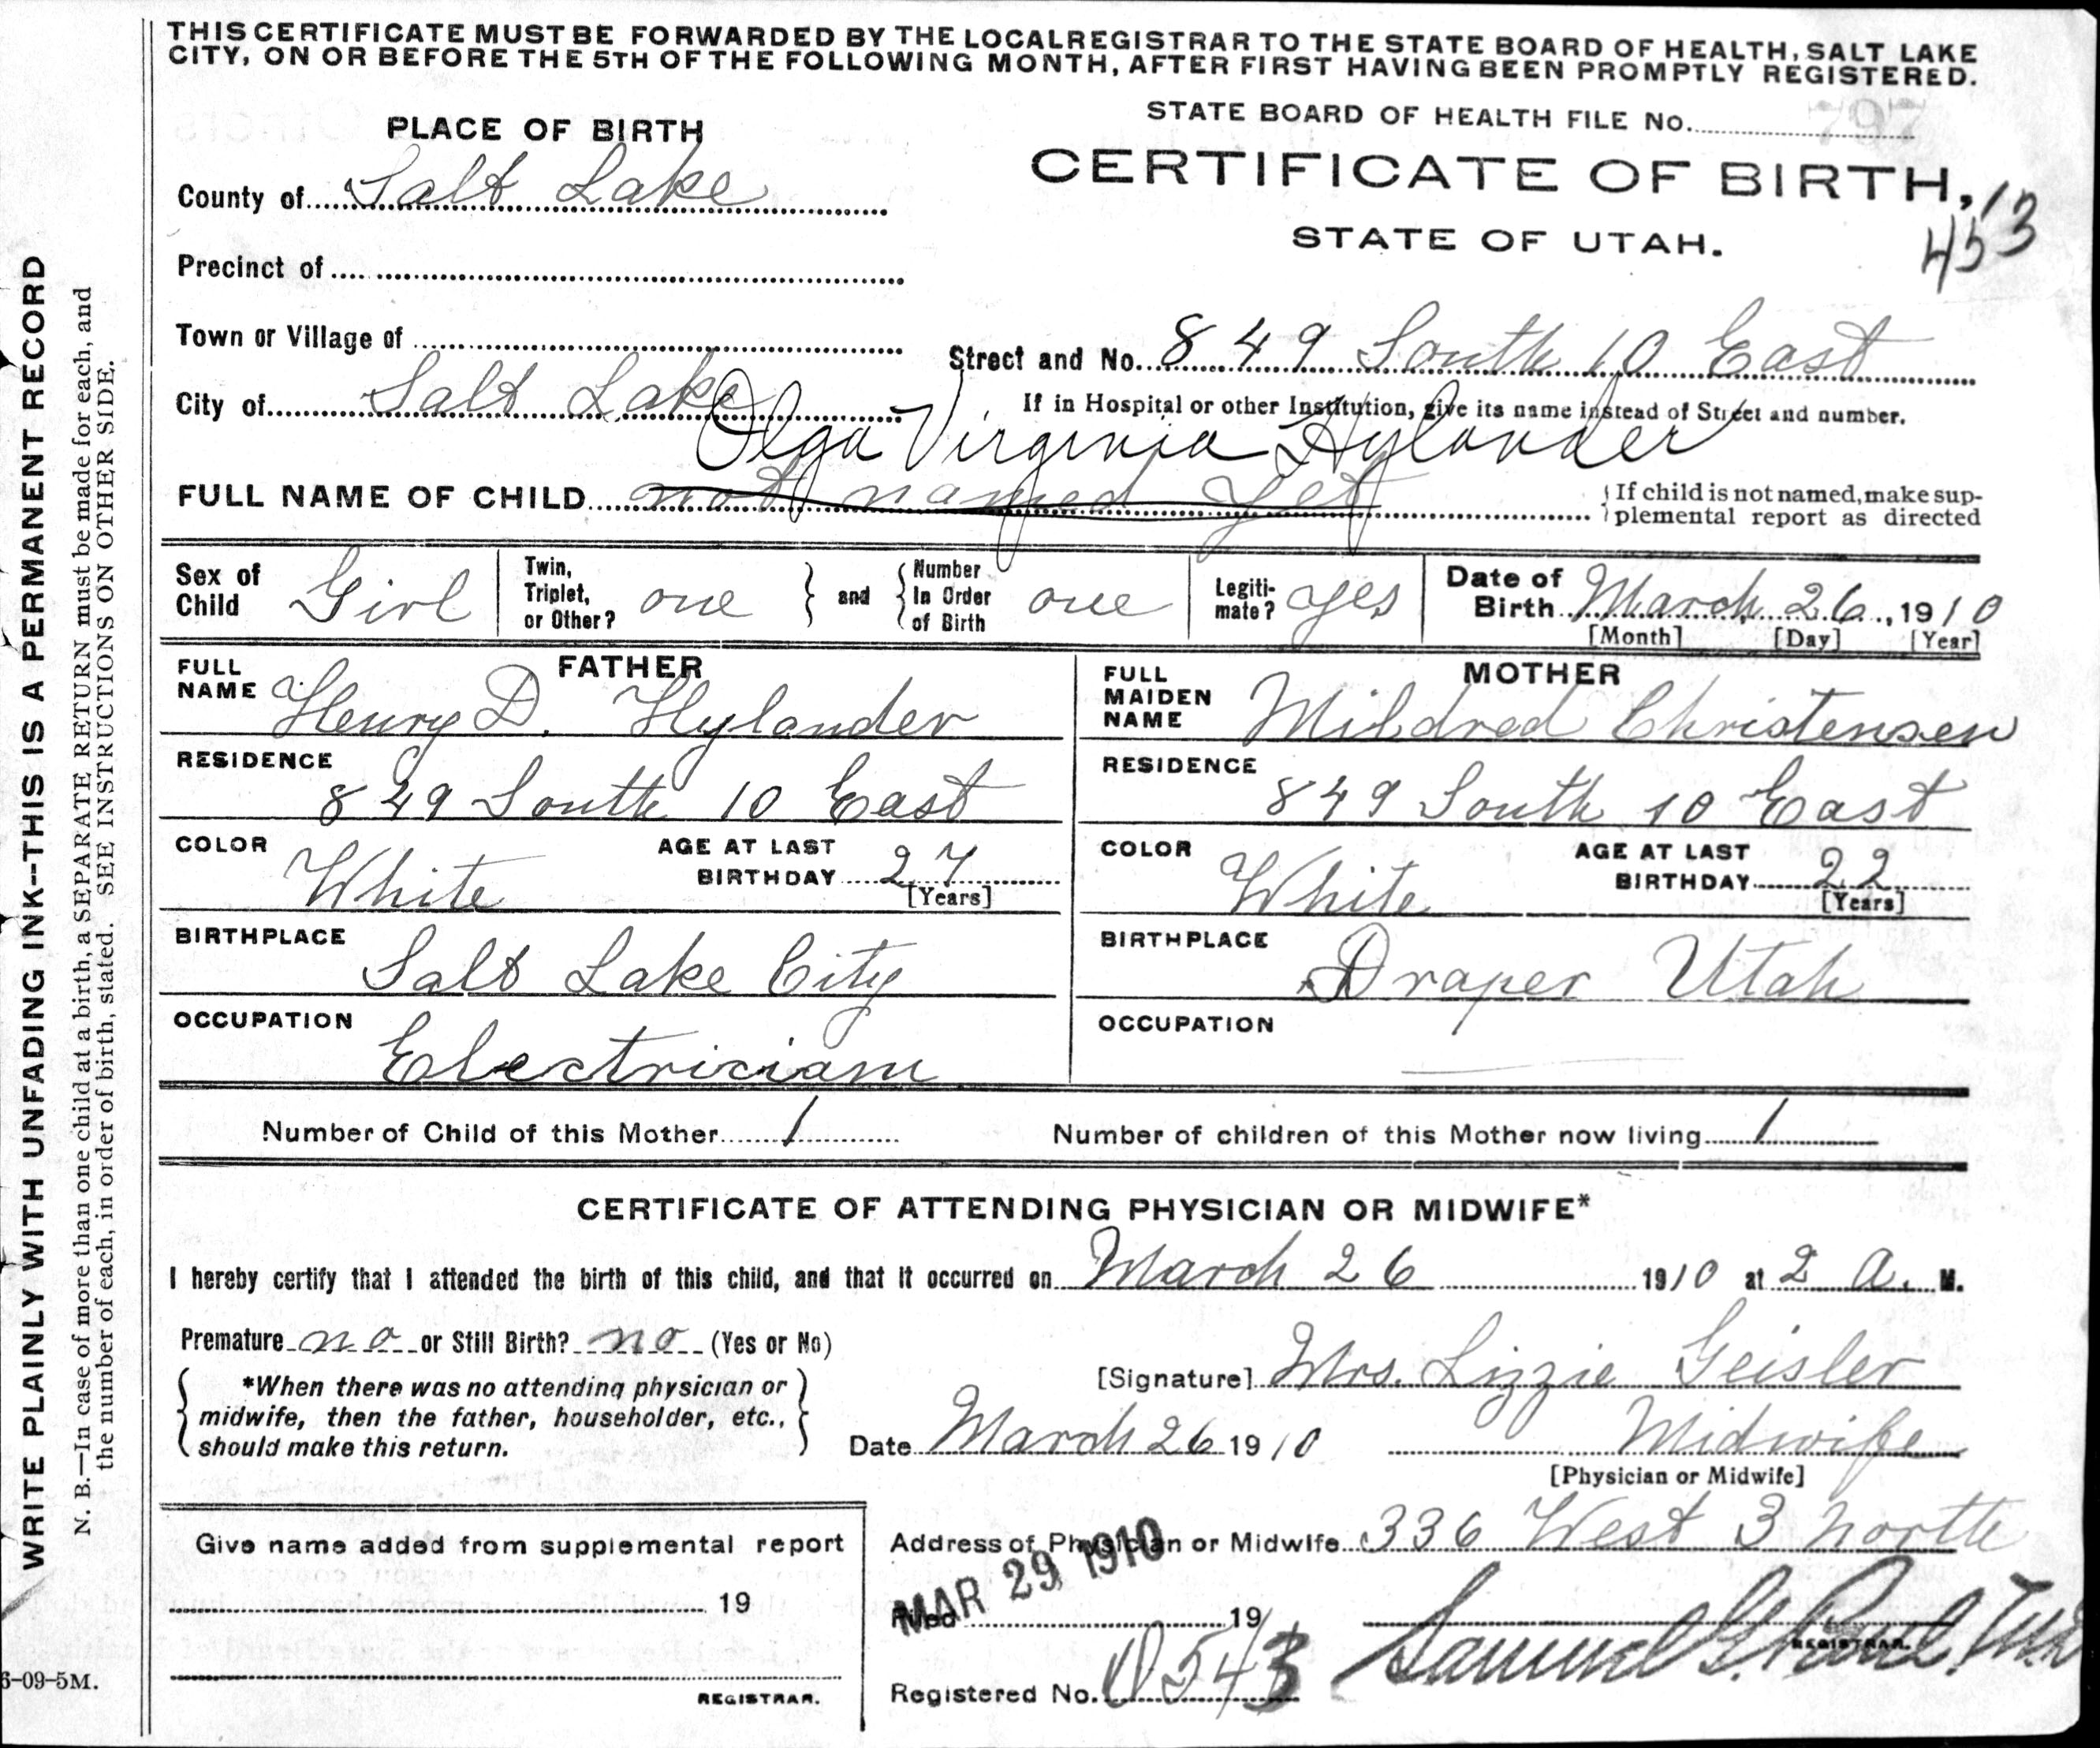 THIS CERTIFICATE MUST BE FORWARDED BY THE LOCAL REGISTRAR TO THE STATE BOARD OF HEALTH, SALT LAKE
CITY, ON OR BEFORE THE 5TH OF THE FOLLOWING MONTH, AFTER FIRST HAVING BEEN PROMPTLY REGISTERED.
WRITE PLAINLY WITH UNFADING INK--THIS IS A PERMANENT RECORD
N. B.—In case of more than one child at a birth, a SEPARATE RETURN must be made for each, and
the number of each, in order of birth, stated. SEE INSTRUCTIONS ON OTHER SIDE.
STATE BOARD OF HEALTH FILE No. 797
PLACE OF BIRTH
CERTIFICATE OF BIRTH,
STATE OF UTAH.
453
County of Salt Lake
Precinct of
Town or Village of
Street and No. 849 South 10 East
City of Salt Lake
If in Hospital or other Institution, give its name instead of Street and number.
Olga Virginia Hylander
FULL NAME OF CHILD not named yet
If child is not named, make sup-
plemental report as directed
Sex of Child Girl
Twin, Triplet, or Other? one
and Number In Order of Birth one
Legiti-mate? yes
Date of Birth March 26, 1910
[Month] [Day] [Year]
FATHER
FULL NAME Henry D. Hylander
RESIDENCE
849 South 10 East
COLOR White
AGE AT LAST BIRTHDAY 27
[Years]
BIRTHPLACE
Salt Lake City
OCCUPATION
Electrician
MOTHER
FULL MAIDEN NAME Mildred Christensen
RESIDENCE
849 South 10 East
COLOR White
AGE AT LAST BIRTHDAY 22
[Years]
BIRTHPLACE
Draper Utah
OCCUPATION
Number of Child of this Mother 1
Number of children of this Mother now living 1
CERTIFICATE OF ATTENDING PHYSICIAN OR MIDWIFE*
I hereby certify that I attended the birth of this child, and that it occurred on March 26 1910 at 2 a. M.
Premature no or Still Birth? no (Yes or No)
*When there was no attending physician or
midwife, then the father, householder, etc.,
should make this return.
[Signature] Mrs. Lizzie Geisler
Date March 26 1910
Midwife
[Physician or Midwife]
Give name added from supplemental report
19
REGISTRAR.
Address of Physician or Midwife 336 West 3 North
MAR 29 1910
Filed 19
Samuel G. Paul. M.D.
REGISTRAR.
Registered No. 543
6-09-5M.